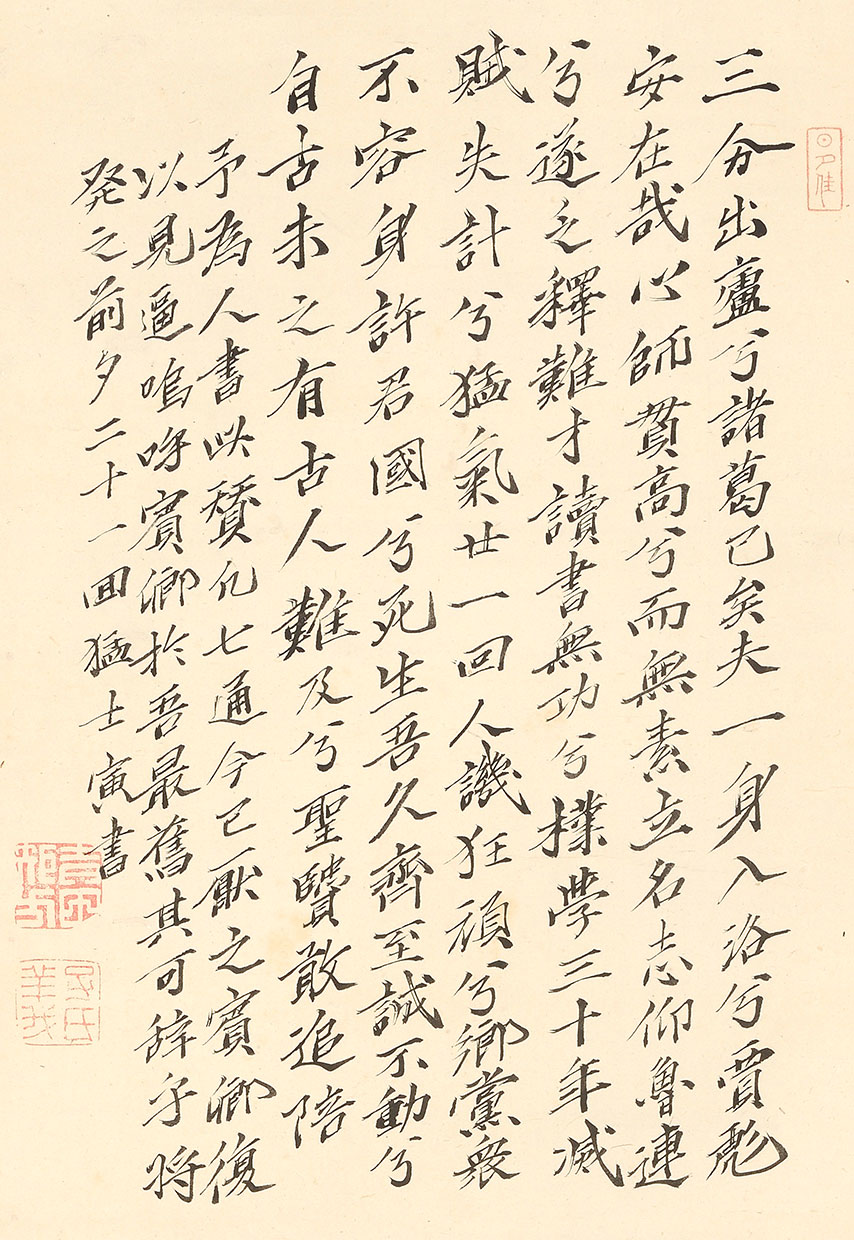 三分出廬兮諸葛已矣夫一身入洛兮賈彪
安在哉心師貫高兮而無素立名志仰魯連
兮遂乏釋難才讀書無功兮樸學三十年滅
賊失計兮猛氣廿一回人譏狂頑兮鄉黨衆
不容身許君國兮死生吾久齊至誠不動兮
自古未之有古人難及兮聖賢敢追陪
予為人書此贊凡七通今已厭之賓卿復
以見逼嗚呼賓卿於吾最舊其可辞乎将
発之前夕二十一回猛士寅書